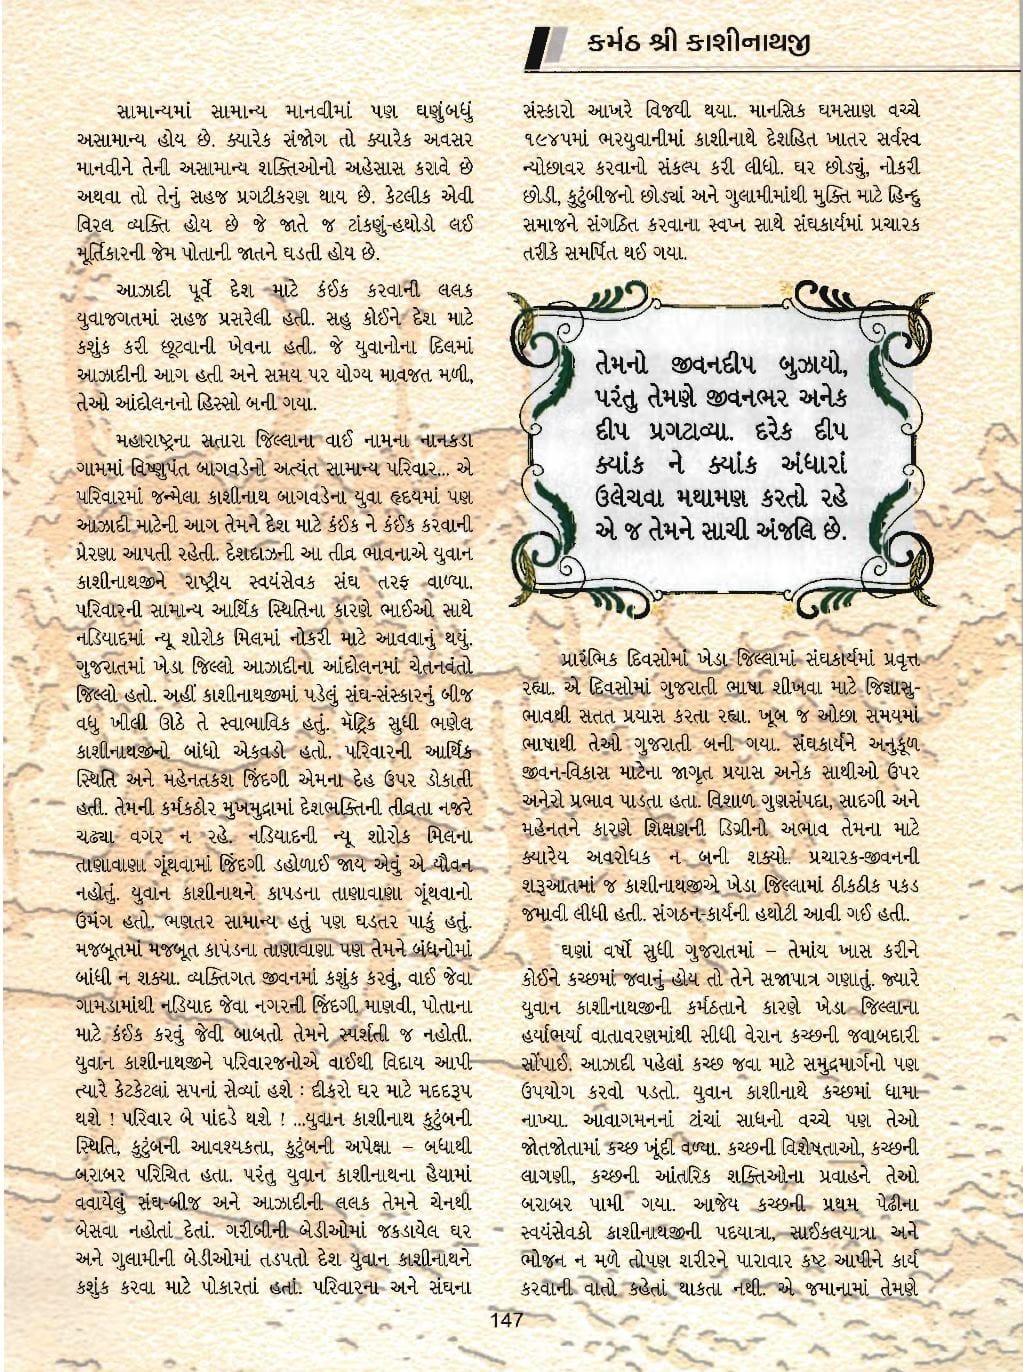 કર્મઠ શ્રી કાશીનાથજી
સામાન્યમાં સામાન્ય માનવીમાં પણ ઘણુંબધું
અસામાન્ય હોય છે. ક્યારેક સંજોગ તો ક્યારેક અવસર
માનવીને તેની અસામાન્ય શક્તિઓનો અહેસાસ કરાવે છે
અથવા તો તેનું સહજ પ્રગટીકરણ થાય છે. કેટલીક એવી
વિરલ વ્યક્તિ હોય છે જે જાતે જ ટાંકણું-હથોડો લઈ
મૂર્તિકારની જેમ પોતાની જાતને ઘડતી હોય છે.
આઝાદી પૂર્વે દેશ માટે કંઈક કરવાની લલક
યુવાજગતમાં સહજ પ્રસરેલી હતી. સહુ કોઈને દેશ માટે
કશુંક કરી છૂટવાની ખેવના હતી. જે યુવાનોના દિલમાં
આઝાદીની આગ હતી અને સમય પર યોગ્ય માવજત મળી,
તેઓ આંદોલનનો હિસ્સો બની ગયા.
મહારાષ્ટ્રના સતારા જિલ્લાના વાઈ નામના નાનકડા
ગામમાં વિષ્ણુપંત બાગવડેનો અત્યંત સામાન્ય પરિવાર... એ
પરિવારમાં જન્મેલા કાશીનાથ બાગવડેના યુવા હૃદયમાં પણ
આઝાદી માટેની આગ તેમને દેશ માટે કંઈક ને કંઈક કરવાની
પ્રેરણા આપતી રહેતી. દેશદાઝની આ તીવ્ર ભાવનાએ યુવાન
કાશીનાથજીને રાષ્ટ્રીય સ્વયંસેવક સંઘ તરફ વાળ્યા.
પરિવારની સામાન્ય આર્થિક સ્થિતિના કારણે ભાઈઓ સાથે
નડિયાદમાં ન્યૂ શોરોક મિલમાં નોકરી માટે આવવાનું થયું.
ગુજરાતમાં ખેડા જિલ્લો આઝાદીના આંદોલનમાં ચેતનવંતો
જિલ્લો હતો. અહીં કાશીનાથજીમાં પડેલું સંઘ-સંસ્કારનું બીજ
વધુ ખીલી ઊઠે તે સ્વાભાવિક હતું. મૅટ્રિક સુધી ભણેલ
કાશીનાથજીનો બાંધો એકવડો હતો. પરિવારની આર્થિક
સ્થિતિ અને મહેનતકશ જિંદગી એમના દેહ ઉપર ડોકાતી
હતી. તેમની કર્મકઠોર મુખમુદ્રામાં દેશભક્તિની તીવ્રતા નજરે
ચઢ્યા વગર ન રહે. નડિયાદની ન્યૂ શોરોક મિલના
તાણાવાણા ગૂંથવામાં જિંદગી ડહોળાઈ જાય એવું એ યૌવન
નહોતું. યુવાન કાશીનાથને કાપડના તાણાવાણા ગૂંથવાનો
ઉમંગ હતો. ભણતર સામાન્ય હતું પણ ઘડતર પાકું હતું.
મજબૂતમાં મજબૂત કાપડના તાણાવાણા પણ તેમને બંધનોમાં
બાંધી ન શક્યા. વ્યક્તિગત જીવનમાં કશુંક કરવું, વાઈ જેવા
ગામડામાંથી નડિયાદ જેવા નગરની જિંદગી માણવી, પોતાના
માટે કંઈક કરવું જેવી બાબતો તેમને સ્પર્શતી જ નહોતી.
યુવાન કાશીનાથજીને પરિવારજનોએ વાઈથી વિદાય આપી
ત્યારે કેટકેટલાં સપનાં સેવ્યાં હશે : દીકરો ઘર માટે મદદરૂપ
થશે ! પરિવાર બે પાંદડે થશે ! ...યુવાન કાશીનાથ કુટુંબની
સ્થિતિ, કુટુંબની આવશ્યકતા, કુટુંબની અપેક્ષા – બધાથી
બરાબર પરિચિત હતા. પરંતુ યુવાન કાશીનાથના હૈયામાં
વવાયેલું સંઘ-બીજ અને આઝાદીની લલક તેમને ચેનથી
બેસવા નહોતાં દેતાં. ગરીબીની બેડીઓમાં જકડાયેલ ઘર
અને ગુલામીની બેડીઓમાં તડપતો દેશ યુવાન કાશીનાથને
કશુંક કરવા માટે પોકારતાં હતાં. પરિવારના અને સંઘના
સંસ્કારો આખરે વિજયી થયા. માનસિક ઘમસાણ વચ્ચે
૧૯૪૫માં ભરયુવાનીમાં કાશીનાથે દેશહિત ખાતર સર્વસ્વ
ન્યોછાવર કરવાનો સંકલ્પ કરી લીધો. ઘર છોડ્યું, નોકરી
છોડી, કુટુંબીજનો છોડ્યાં અને ગુલામીમાંથી મુક્તિ માટે હિન્દુ
સમાજને સંગઠિત કરવાના સ્વપ્ન સાથે સંઘકાર્યમાં પ્રચારક
તરીકે સમર્પિત થઈ ગયા.
તેમનો જીવનદીપ બુઝાયો,
પરંતુ તેમણે જીવનભર અનેક
દીપ પ્રગટાવ્યા. દરેક દીપ
ક્યાંક ને ક્યાંક અંધારાં
ઉલેચવા મથામણ કરતો રહે
એ જ તેમને સાચી અંજલિ છે.
પ્રારંભિક દિવસોમાં ખેડા જિલ્લામાં સંઘકાર્યમાં પ્રવૃત્ત
રહ્યા. એ દિવસોમાં ગુજરાતી ભાષા શીખવા માટે જિજ્ઞાસુ-
ભાવથી સતત પ્રયાસ કરતા રહ્યા. ખૂબ જ ઓછા સમયમાં
ભાષાથી તેઓ ગુજરાતી બની ગયા. સંઘકાર્યને અનુકૂળ
જીવન-વિકાસ માટેના જાગૃત પ્રયાસ અનેક સાથીઓ ઉપર
અનેરો પ્રભાવ પાડતા હતા. વિશાળ ગુણસંપદા, સાદગી અને
મહેનતને કારણે શિક્ષણની ડિગ્રીનો અભાવ તેમના માટે
ક્યારેય અવરોધક ન બની શક્યો. પ્રચારક-જીવનની
શરૂઆતમાં જ કાશીનાથજીએ ખેડા જિલ્લામાં ઠીકઠીક પકડ
જમાવી લીધી હતી. સંગઠન-કાર્યની હથોટી આવી ગઈ હતી.
ઘણાં વર્ષો સુધી ગુજરાતમાં – તેમાંય ખાસ કરીને
કોઈને કચ્છમાં જવાનું હોય તો તેને સજાપાત્ર ગણાતું. જ્યારે
યુવાન કાશીનાથજીની કર્મઠતાને કારણે ખેડા જિલ્લાના
હર્યાભર્યા વાતાવરણમાંથી સીધી વેરાન કચ્છની જવાબદારી
સોંપાઈ. આઝાદી પહેલાં કચ્છ જવા માટે સમુદ્રમાર્ગનો પણ
ઉપયોગ કરવો પડતો. યુવાન કાશીનાથે કચ્છમાં ધામા
નાખ્યા. આવાગમનનાં ટાંચાં સાધનો વચ્ચે પણ તેઓ
જોતજોતામાં કચ્છ ખૂંદી વળ્યા. કચ્છની વિશેષતાઓ, કચ્છની
લાગણી, કચ્છની આંતરિક શક્તિઓના પ્રવાહને તેઓ
બરાબર પામી ગયા. આજેય કચ્છની પ્રથમ પેઢીના
સ્વયંસેવકો કાશીનાથજીની પદયાત્રા, સાઈકલયાત્રા અને
ભોજન ન મળે તોપણ શરીરને પારાવાર કષ્ટ આપીને કાર્ય
કરવાની વાતો કહેતાં થાકતા નથી. એ જમાનામાં તેમણે
147